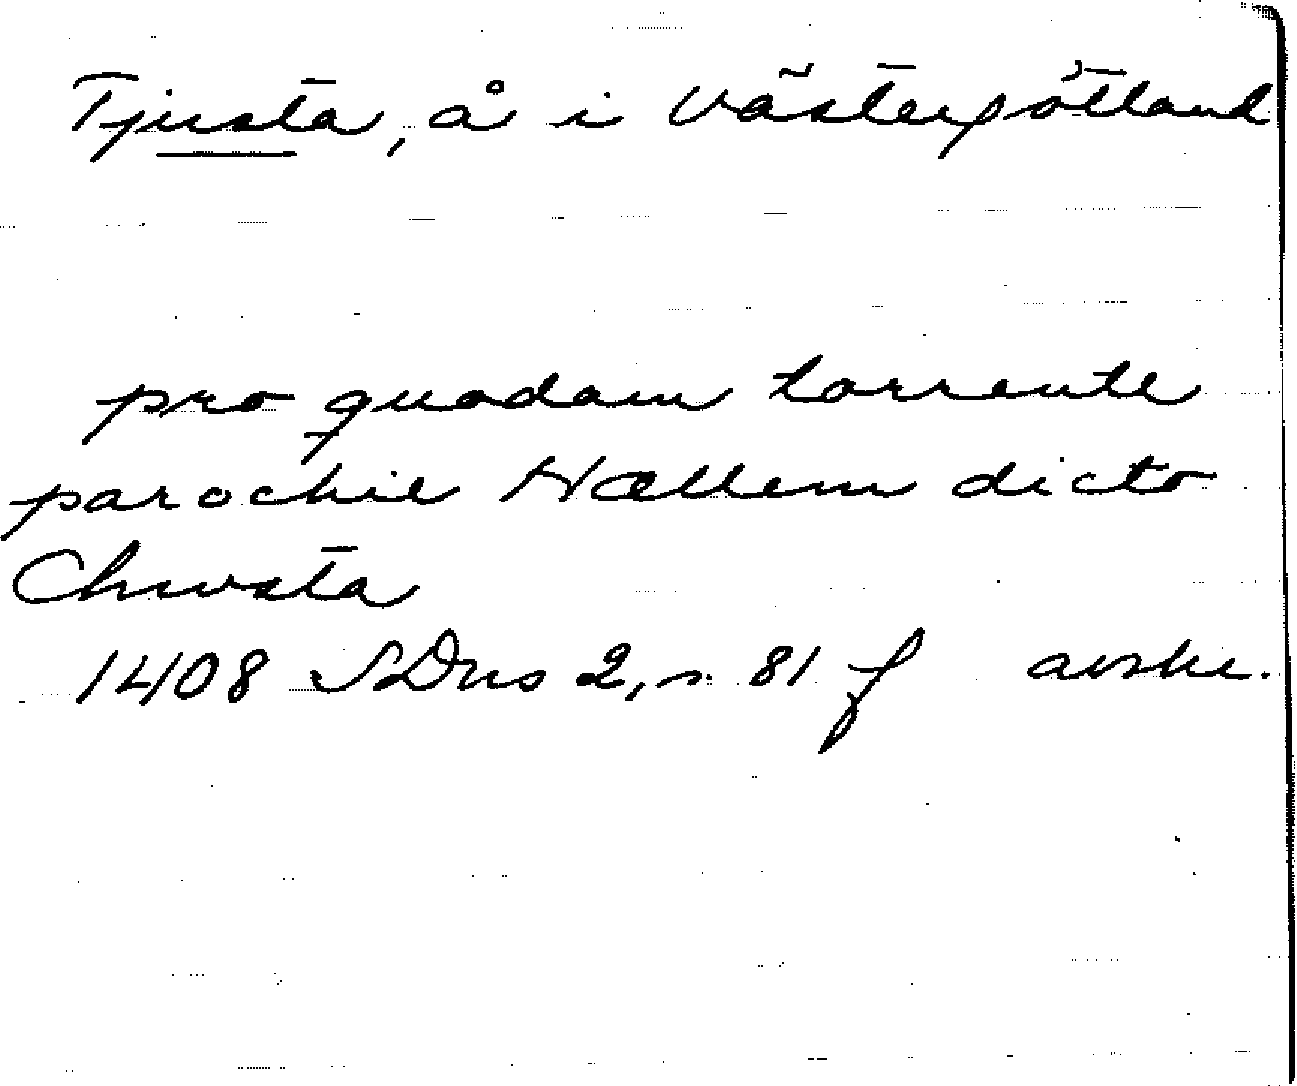 Tjusta, å i Västergötland
pro quodam torrente
parochie Hællem dicto
Chwsta
1408 SDns 2, s. 81 f avskr.